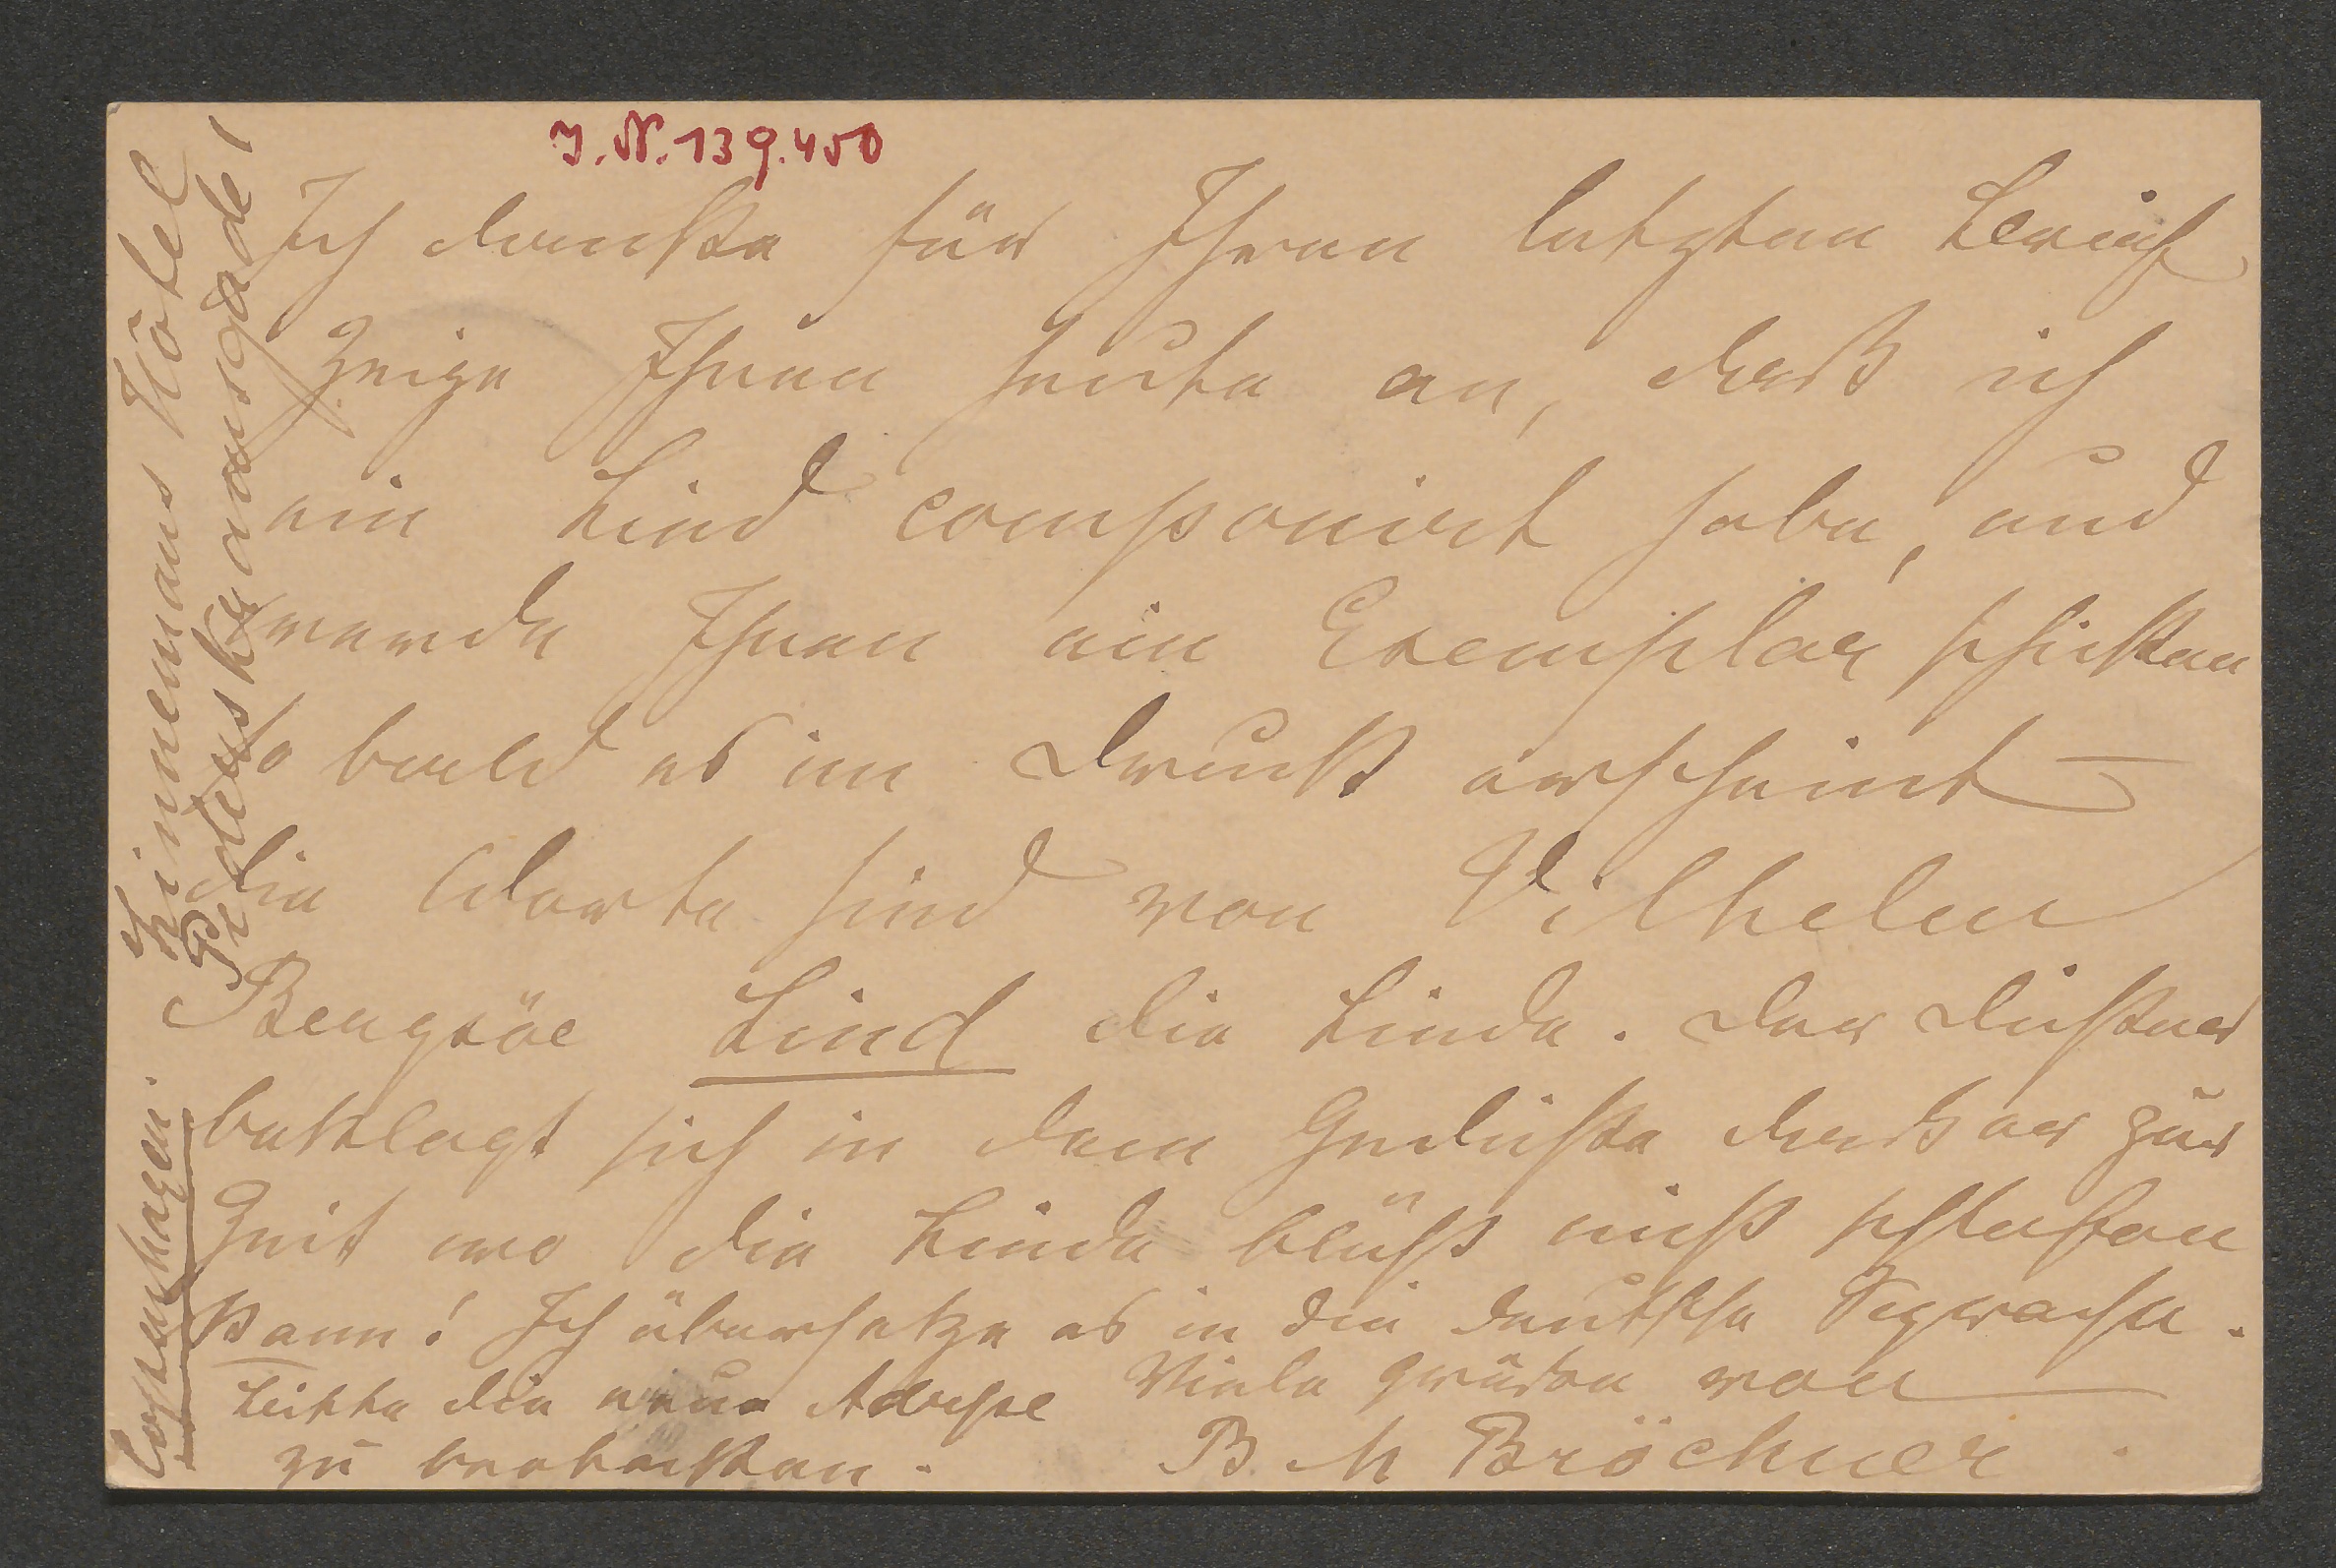 J.N. 139.450
Ich danke für Ihren letzten Brief
zeige Ihnen heute an, daß ich
ein Lied componirt habe, und
werde Ihnen ein Exemplar schicken
so bald es im Druck erscheint –
die Worte sind von Vilhelm
Bergsöe Lind die Linde. Der Dichter
beklagt sich in dem Gedichte daß er zur
Zeit wo die Linde blüht nicht schlafen
kann! Ich übersetze es in die deutsche Sprache.
Bitte die neue Adresse
zu beobachten.
Viele grüßen von
B. M Bröchner
Copenhagen. Zinnemans Hôtel